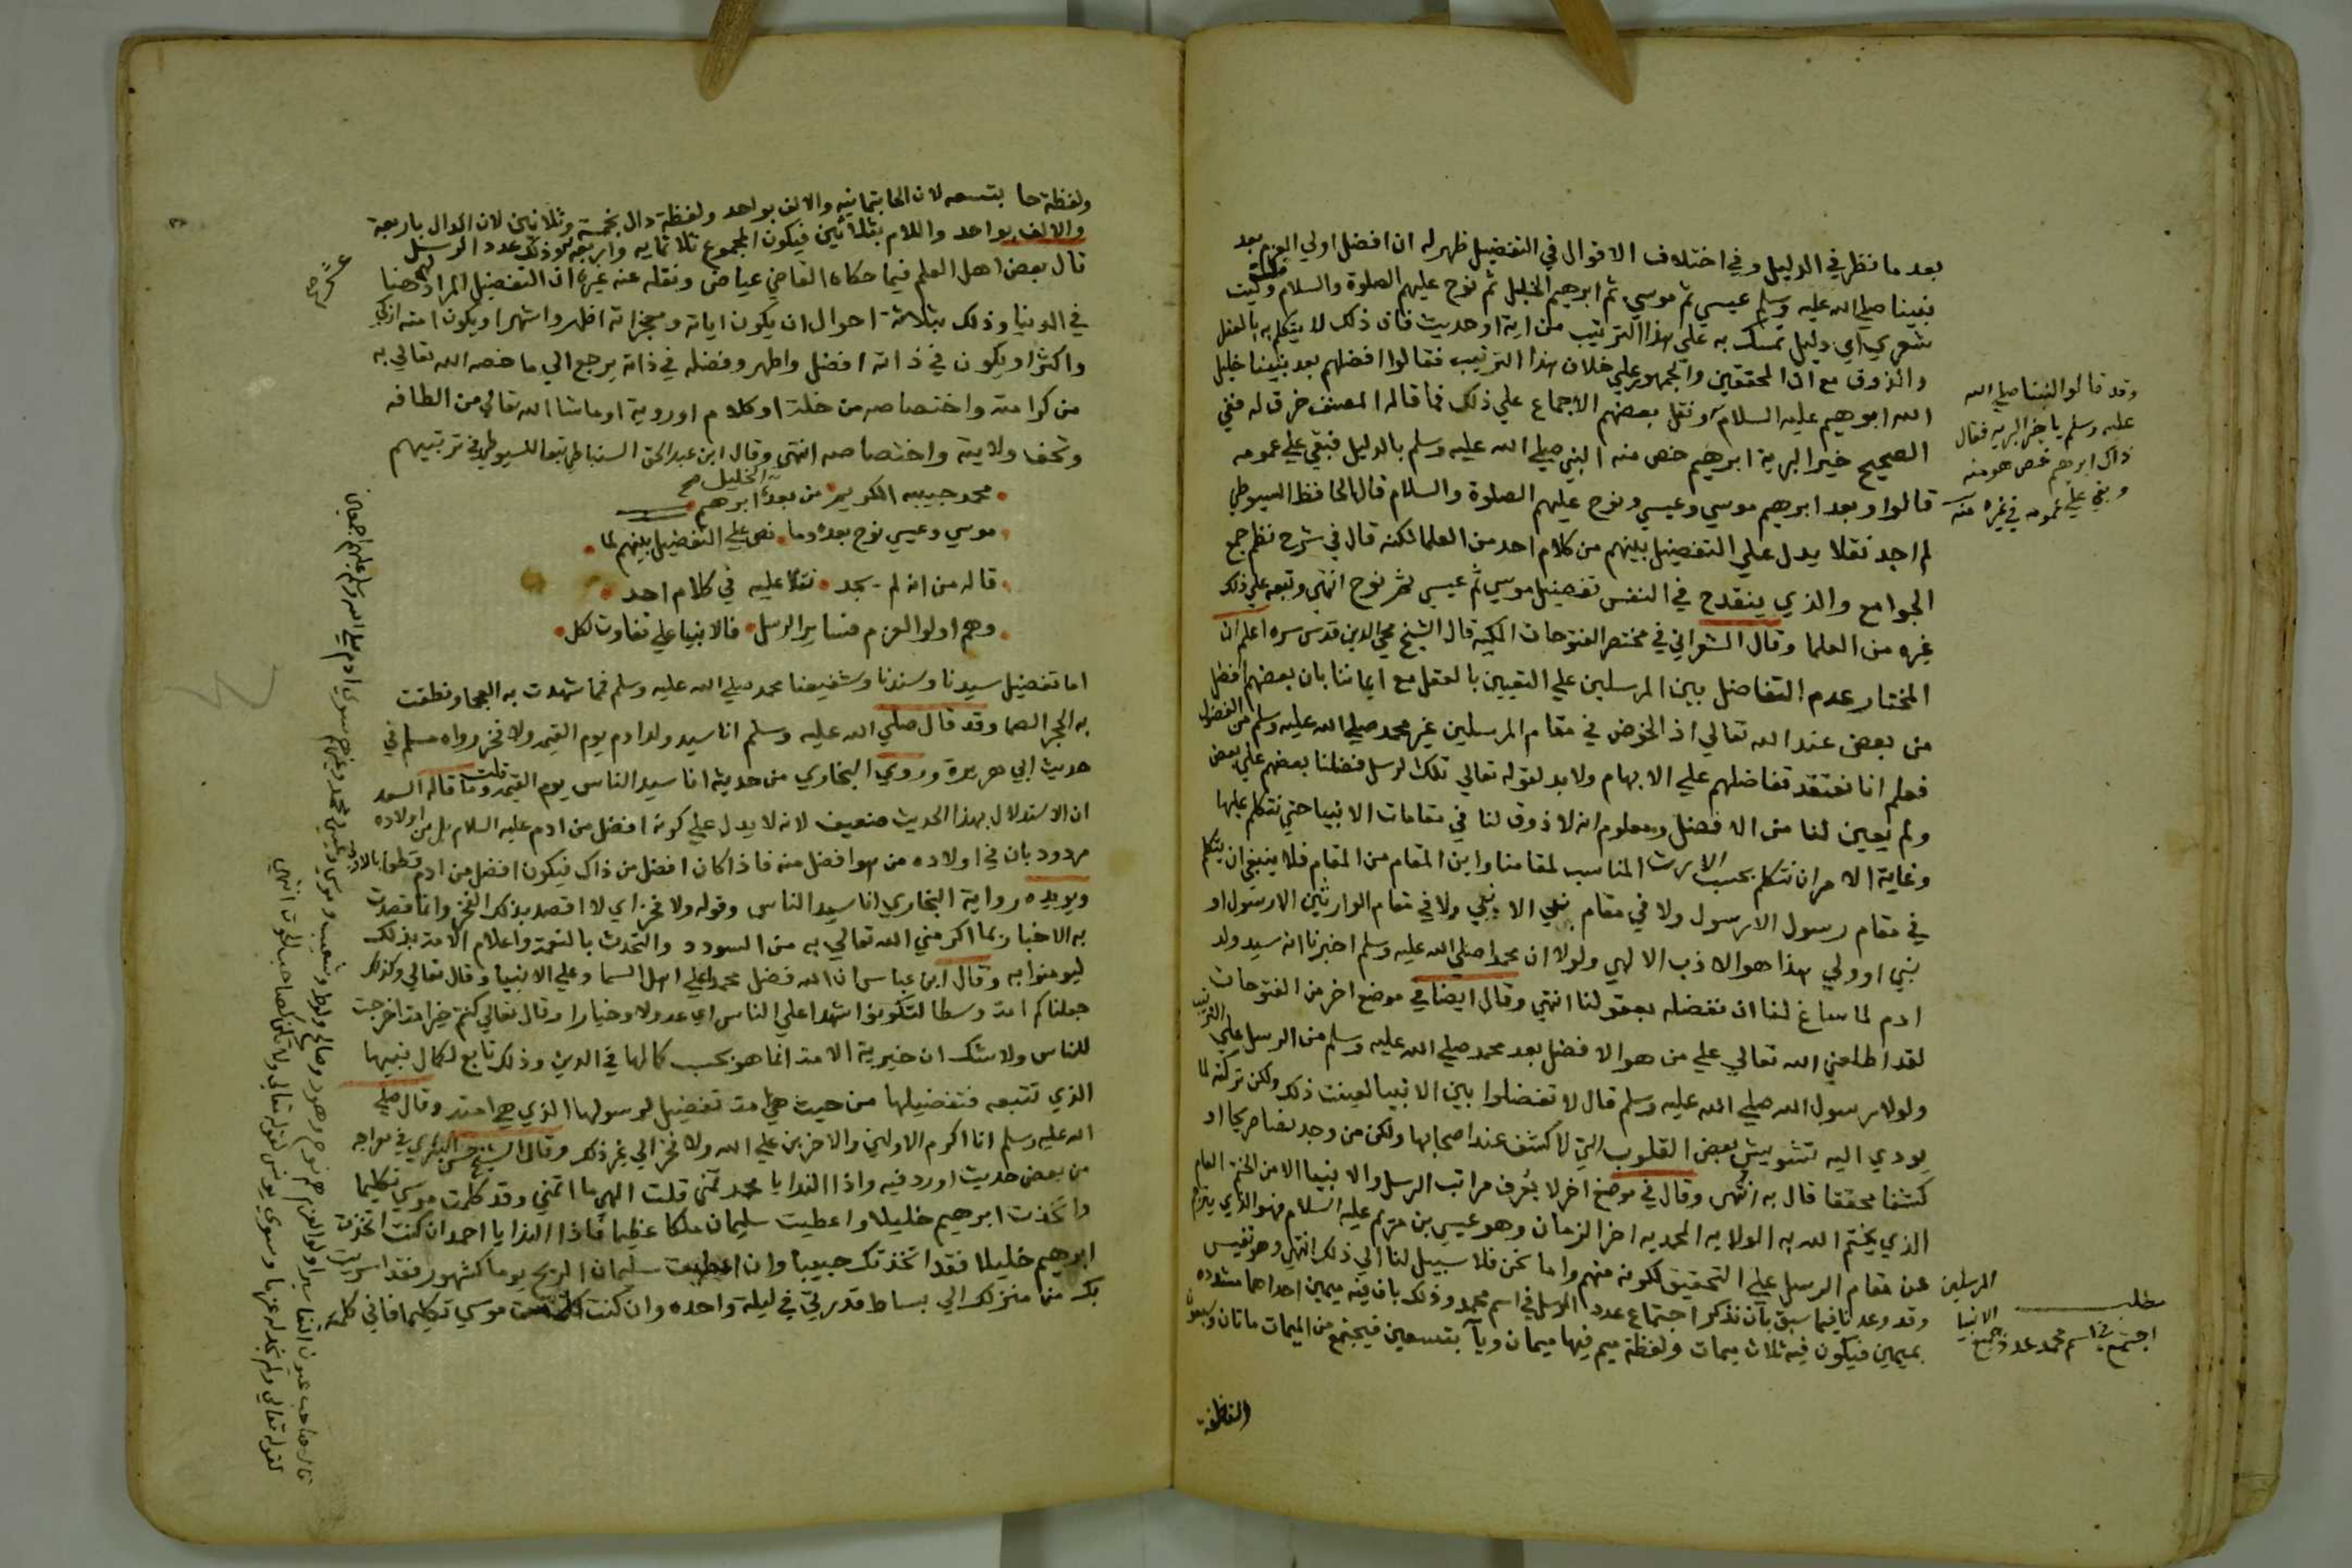 بعد ما نظر في الدليل وفي اختلاف الاقوال في التفضيل ظهر له ان افضل اولي العزم بعد
نبينا صلي الله عليه وسلم عيسي ثم موسي ثم ابرهيم الخليل ثم نوح عليهم الصلوة والسلام وليت
شعري اي دليل تمسك به علي هذا الترتيب من اية او حديث فان ذلك لا يتكلم به بالعقل
والذوق مع ان المحققين والجمهور علي خلاف هذا الترتيب فقالوا افضلهم بعد نبينا خليل
الله ابرهيم عليه السلام ونقل بعضهم الاجماع علي ذلك فما قاله المصنف خرق له ففي
الصحيح خير البرية ابرهيم خص منه النبي صلي الله عليه وسلم بالدليل فبقي علي عمومه
قالوا وبعد ابرهيم موسي وعيسي ونوح عليهم الصلوة والسلام قال الحافظ السيوطي
لم اجد نقلا يدل علي التفضيل بينهم من كلام احد من العلما لكنه قال في شرح نظم جمع
الجوامع والذي ينقدح في النفس تفضيل موسي ثم عيسي ثم نوح انتهي وتبعه علي ذلك
غيره من العلما وقال الشعراني في مختصر الفتوحات المكية قال الشيخ محي الدين قدس سره اعلم ان
المختار عدم التفاضل بين المرسلين علي التعيين بالعقل مع ايماننا بان بعضهم افضل
من بعض عند الله تعالي اذ الخوض في مقام المرسلين غير محمد صلي الله عليه وسلم من الفضول
فعلم انا نعتقد تفاضلهم علي الابهام ولا بد لقوله تعالي تلك الرسل فضلنا بعضهم علي بعض
ولم يعين لنا من الافضل ومعلوم انه لا ذوق لنا في مقامات الانبيا حتي نتكلم عليها
وغاية الامر ان نتكلم بحسب الارث المناسب لمقامنا واين المقام من المقام فلا ينبغي ان يتكلم
في مقام رسول الا رسول ولا في مقام نبي الا نبي ولا في مقام الوارثين الا رسول او
نبي او ولي هذا هو الادب الالهي ولولا ان محمدا صلي الله عليه وسلم اخبرنا انه سيد ولد
ادم لما ساغ لنا ان نفضله بعقولنا انتهي وقال ايضا في موضع اخر من الفتوحات
لقد اطلعني الله تعالي علي من هو الافضل بعد محمد صلي الله عليه وسلم من الرسل علي الترتيب
ولولا رسول الله صلي الله عليه وسلم قال لا تفضلوا بين الانبيا لعينت ذلك ولكن تركته لما
يودي اليه تشويش بعض القلوب التي لا كشف عند اصحابها ولكن من وجد نصا صريحا او
كشفا محققا قال به انتهي وقال في موضع اخر لا يعرف مراتب الرسل والانبيا الا من الختم العام
الذي يختم الله به الولاية المحمدية اخر الزمان وهو عيسي بن مريم عليه السلام فهو الذي يترجم
عن مقام الرسل علي التحقيق لكونه منهم واما نحن فلا سبيل لنا الي ذلك انتهي وهو نفيس
وقد وعدنا فيما سبق بان نذكر اجتماع عدد الرسل في اسم محمد وذلك بان فيه ميمين احداهما مشدده
بميمين فيكون فيه ثلاث ميمات ولفظة ميم فيها ميمان ويا بتسعين فيجتمع من الميمات ماتان وسبعون
ولفظة
وقد قالوا لنبينا صلي الله
عليه وسلم يا خير البريه فقال
ذاك ابرهيم خص هو منه
وبقي علي عمومه في غيره منه
مطلب
اجتمع في اسم محمد عدد جميع
الانبيا
المرسلين
ولفظة حا بتسعه لان الحا بثمانيه والالف بواحد ولفظة دال بخمسة وثلاثين لان الدال باربعة
والالف بواحد واللام بثلاثين فيكون المجموع ثلاثمايه واربعة عشر وذلك عدد الرسل
قال بعض اهل العلم فيما حكاه القاضي عياض ونقله عنه غيره ان التفضيل المراد لهم هنا
في الدنيا وذلك بثلاثة احوال ان يكون اياته ومعجزاته اظهر واشهر او يكون امته ازكي
واكثر او يكون في ذاته افضل واطهر وفضله في ذاته يرجع الي ما خصه الله تعالي به
من كرامته واختصاصه من خلة او كلام او روية او ماشا الله تعالي من الطافه
وتحف ولايته واختصاصه انتهي وقال ابن عبد الحق السنباطي تبعا للسيوطي في ترتيبهم
محمد حبيبه الكريم من بعده ابرهيم الخليل صح
موسي وعيسي نوح بعده وما نص علي التفضيل بينهم لما
قاله من انه لم يجد نقلا عليه في كلام احد
وهم اولوا العزم فساير الرسل فالانبيا علي تفاوت لكل
اما تفضيل سيدنا وسندنا وشفيعنا محمد صلي الله عليه وسلم فما شهدت به العجما ونطقت
به الحجر الصما وقد قال صلي الله عليه وسلم انا سيد ولد ادم يوم القيمه ولا فخر رواه مسلم في
حديث ابي هريرة وروي البخاري من حديثه انا سيد الناس يوم القيمه قلت وما قاله السعد
ان الاستدلال بهذا الحديث ضعيف لانه لا يدل علي كونه افضل من ادم عليه السلام بل من اولاده
مردود بان في اولاده من هو افضل منه فاذا كان افضل من ذاك فيكون افضل من ادم قطعا بالاولي
ويويده رواية البخاري انا سيد الناس وقوله ولا فخر اي لا اقصد بذلك الفخر وانما قصدت
به الاخبار بما اكرمني الله تعالي به من السودد والتحدث بالنعمة واعلام الامة بذلك
ليومنوا به وقال ابن عباس ان الله فضل محمدا علي اهل السما وعلي الانبيا وقال تعالي وكذلك
جعلناكم امة وسطا لتكونوا شهدا علي الناس اي عدولا وخيارا وقال تعالي كنتم خير امة اخرجت
للناس ولا شك ان خيرية الامة انما هو بحسب كمالها في الدين وذلك تابع لكمال نبيها
الذي تتبعه فتفضيلها من حيث هي امته تفضيل لرسولها الذي هي امته وقال صلي
الله عليه وسلم انا اكرم الاولين والاخرين علي الله ولا فخر الي غير ذلك وقال الشيخ حسن البكري في معراجه
من بعض حديث اورد فيه واذا الندا يا محمد تمني قلت الهي ما اتمني وقد كلمت موسي تكليما
واتخذت ابرهيم خليلا واعطيت سليمان ملكا عظيما فاذا الندا يا احمد ان كنت اتخذت
ابرهيم خليلا فقد اتخذتك حبيبا وان اعطيت سليمان الريح يوما كشهور فقد اسريت
بك من منزلك الي بساط قدرتي في ليلة واحده وان كنت كلمت موسي تكليما فاني كلمتك
قال صاحب عيون التفاسير اولوا العزم هم نوح وهود وصالح ولوط وشعيب وموسي وعيسي ومحمد وغيرهم سوي ادم صلي الله وسلم عليهم اجمعين
لقوله تعالي ولم نجد له عزما وسوي يونس لقوله تعالي ولا تكن كصاحب الحوت انتهي